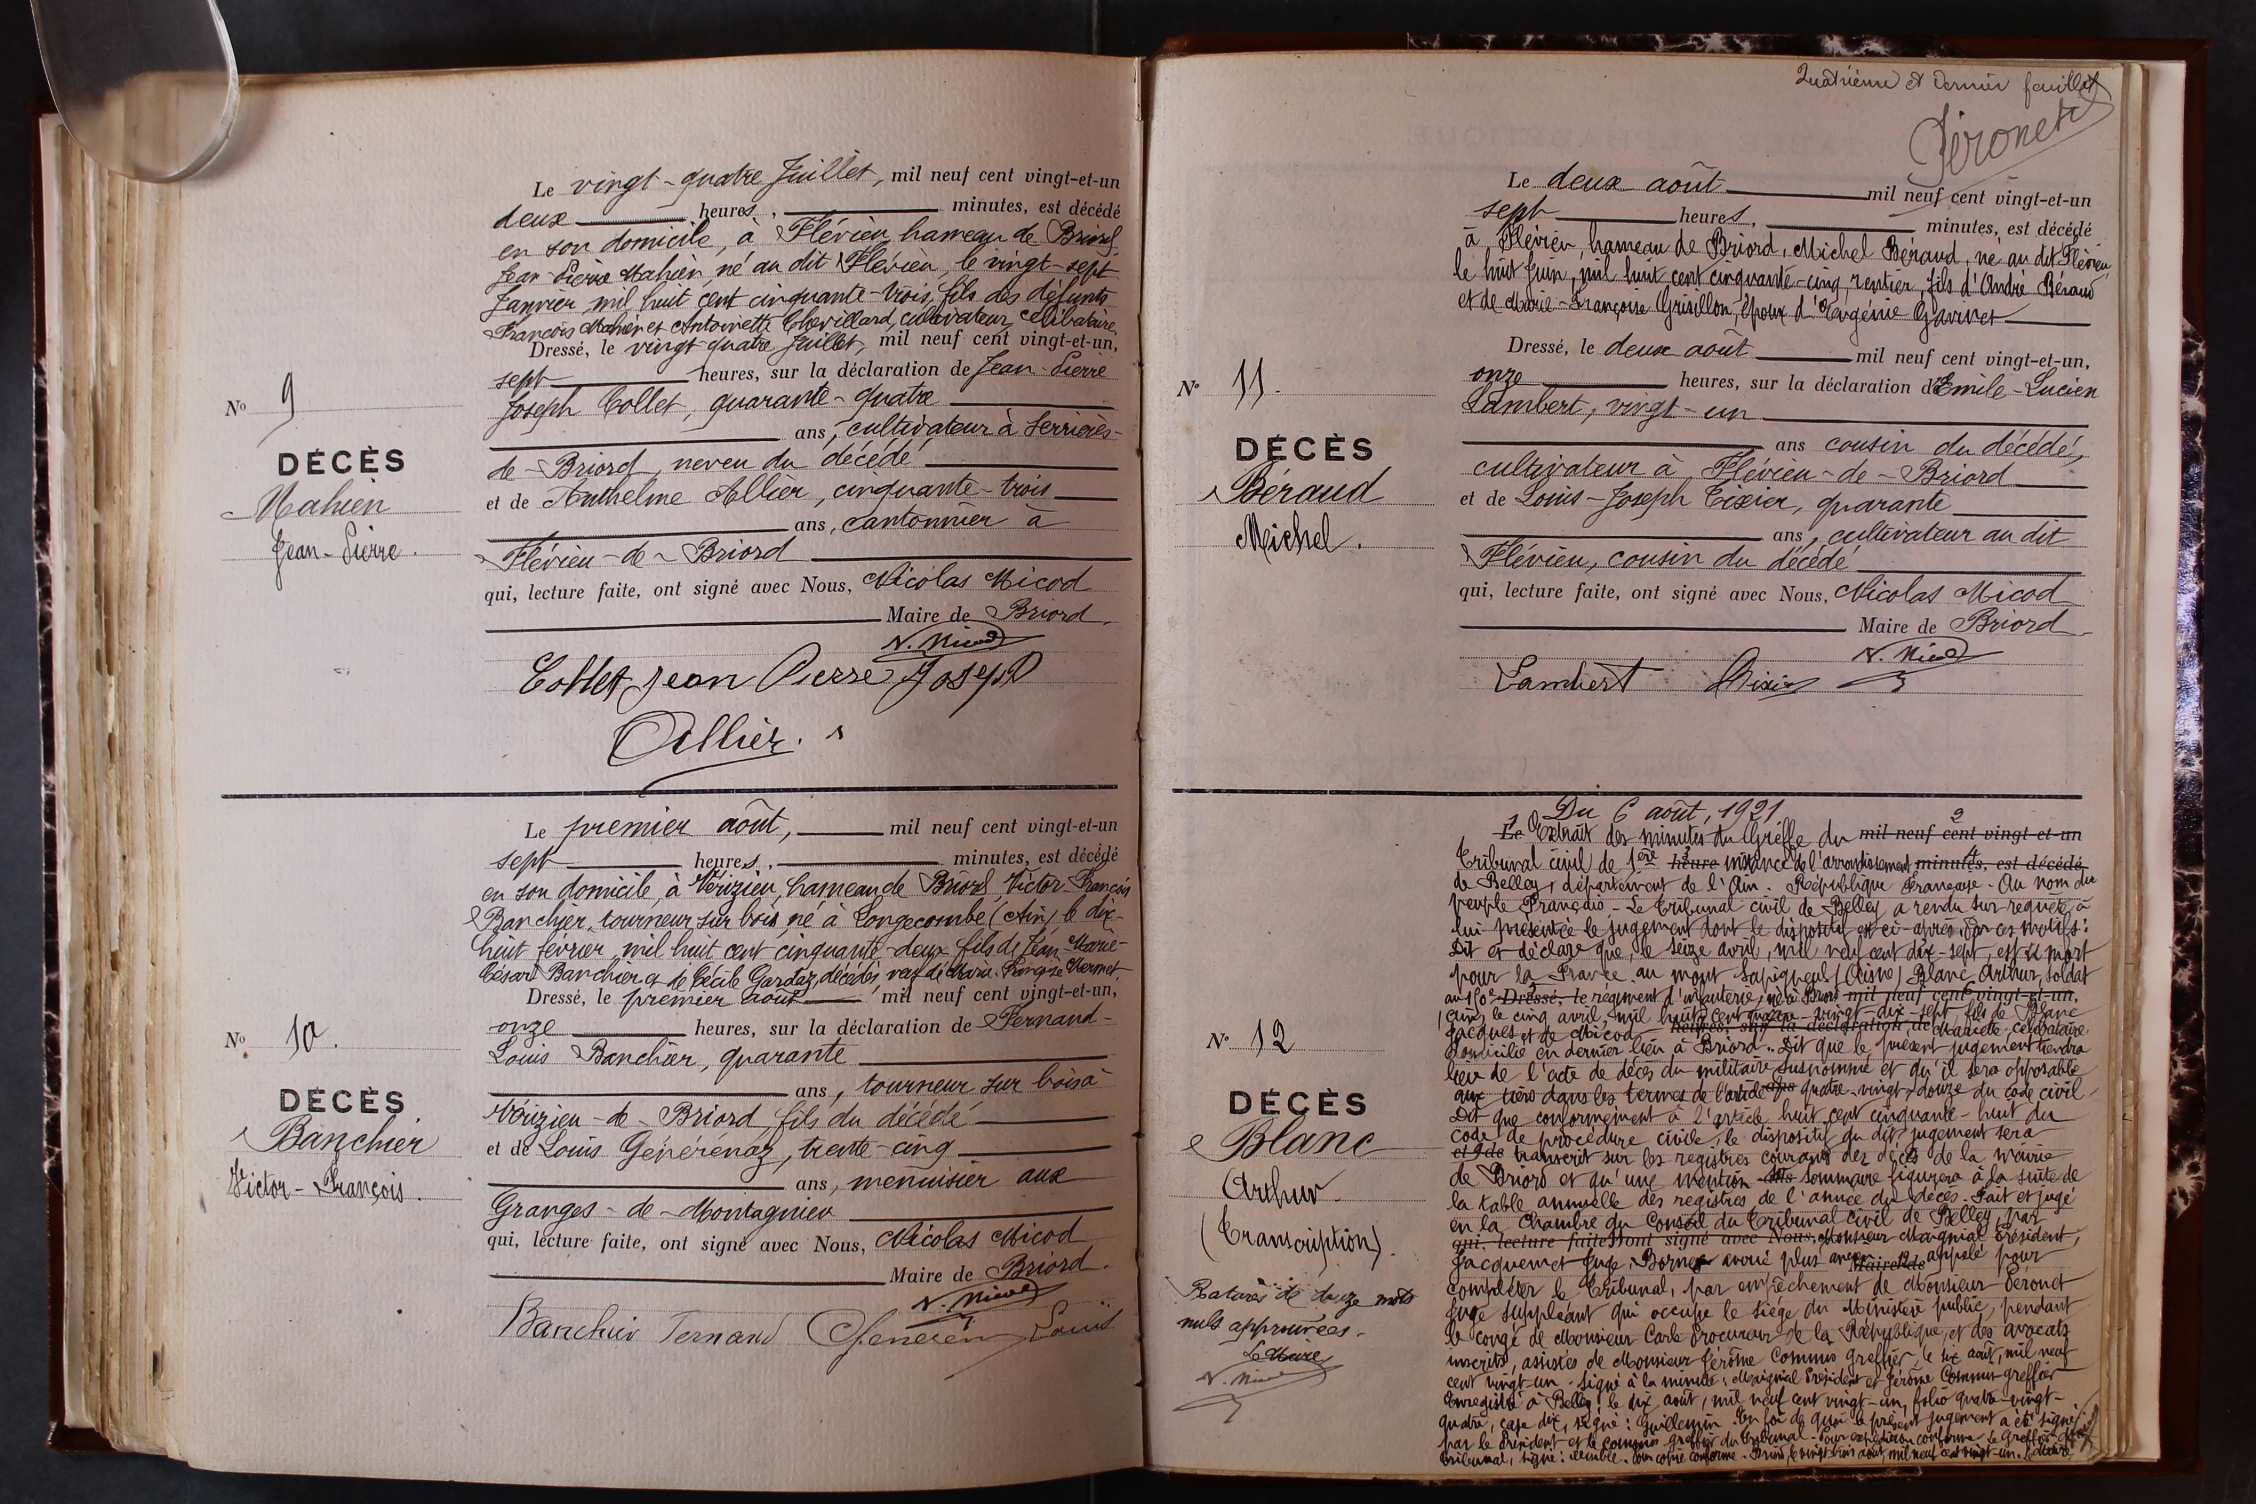 Le vingt-quatre Juillet, mil neuf cent vingt-et-un
deux heures, minutes, est décédé
en son domicile, à Flévieu hameau de Briord,
Jean-Pierre Mahien, né au dit Flévieu, le vingt-sept
Janvier, mil huit cent cinquante-trois, fils des défunts
François Mahien et Antoinette Chevillard, cultivateur, célibataire.
Dressé, le vingt quatre Juillet, mil neuf cent vingt-et-un,
sept heures, sur la déclaration de Jean-Pierre
Joseph Collet, quarante-quatre
ans, cultivateur à Serrières-
de-Briord, neveu du décédé
et de Anthelme Allier, cinquante-trois
ans, cantonnier à
Flévieu-de-Briord
qui, lecture faite, ont signé avec Nous, Nicolas Micod
Maire de Briord.
N. Micod
Collet Jean Pierre Joseph
Allier.
No 9
DÉCÈS
Mahien
Jean-Pierre.
Le premier août, mil neuf cent vingt-et-un
sept heures, minutes, est décédé
en son domicile, à Vérizieu, hameau de Briord, Victor-François
Banchier, tourneur sur bois né à Longecombe (Ain) le dix-
huit février, mil huit cent cinquante-deux, fils de Jean-Marie-
César Banchier et de Cécile Gardaz, décédés, veuf de Marie-Françoise Mermet
Dressé, le premier août mil neuf cent vingt-et-un,
onze heures, sur la déclaration de Fernand-
Louis Banchier, quarante
ans, tourneur sur bois à
Vérizieu-de-Briord, fils du décédé
et de Louis Génerénaz, trente-cinq
ans, menuisier aux
Granges-de-Montagnieu
qui, lecture faite, ont signé avec Nous, Nicolas Micod
Maire de Briord.
N. Micod
Banchier Fernand Louis
No 10.
DÉCÈS
Banchier
Victor-François.
Quatrième et dernier feuillet
Péronet
Le deux août mil neuf cent vingt-et-un
sept heures, minutes, est décédé
à Flévieu, hameau de Briord, Michel Béraud, né au dit Flévieu,
le huit Juin, mil huit cent cinquante-cinq, rentier, fils d'André Béraud
et de Marie-Françoise Grisillon, époux d'Eugénie Garinet
Dressé, le deux août mil neuf cent vingt-et-un,
onze heures, sur la déclaration d'Emile-Lucien
Lambert, vingt-un
ans cousin du décédé,
cultivateur à Flévieu-de-Briord
et de Louis-Joseph Tixier, quarante
ans, cultivateur au dit
Flévieu, cousin du décédé
qui, lecture faite, ont signé avec Nous, Nicolas Micod
Maire de Briord
N. Micod
Lambert Tixier
No 11.
DÉCÈS
Béraud
Michel.
Du 6 août, 1921
Le Extrait des minutes du Greffe du mil neuf cent vingt-et-un
Tribunal civil de 1ère heure instance de l'arrondissement minutes, est décédé
de Belley, département de l'Ain. République Française. Au nom du
peuple Français. Le Tribunal civil de Belley a rendu sur requête à
lui présentée le jugement dont le dispositif est ci-après. Par ces motifs:
Dit et déclare que, le seize avril, mil neuf cent dix-sept, est mort
pour la France au mont Sapigneul (Aisne) Blanc Arthur, soldat
au Dressé, le régiment d'infanterie, né à Briord mil neuf cent vingt-et-un,
(Ain) le cinq avril, mil huit cent quatre-vingt-dix-sept, fils de Blanc
Jacques et de Micod heures, sur la déclaration de Mariette, célibataire
domicilié en dernier lieu à Briord. Dit que le présent jugement tiendra
lieu de l'acte de décès du militaire susnommé et qu'il sera opposable
aux tiers dans les termes de l'article ans quatre-vingt-douze du code civil.
Dit que conformément à l'article huit cent cinquante-huit du
code de procédure civile, le dispositif du dit jugement sera
et de transcrit sur les registres courants des décès de la mairie
de Briord et qu'une mention ans sommaire figurera à la suite de
la table annuelle des registres de l'année du décès. Fait et jugé
en la Chambre du Conseil du Tribunal civil de Belley, par
qui, lecture faite, ont signé avec Nous, Monsieur Magnial Président,
Jacquemet Juge, avoué plus ancien Maire de appelé pour
compléter le Tribunal, par empêchement de Monsieur Péronet
Juge suppléant qui occupe le siège du Ministère public, pendant
le congé de Monsieur Carle Procureur de la République, et des avocats
inscrits, assistés de Monsieur Jérôme Commis greffier le six août, mil neuf
cent vingt-un. Signé à la minute: Magnial Président et Jérôme Commis-greffier
Enregistré à Belley le dix août, mil neuf cent vingt-un, folio quatre-vingt-
quatre, case dix, signé: Guillemin. En foi de quoi le présent jugement a été signé
par le Président et le commis greffier du tribunal. Pour expédition conforme le Greffier du
tribunal, signé: illisible. Pour copie conforme. Briord, le vingt-trois août, mil neuf cent vingt-un. Le Maire
No 12
DÉCÈS
Blanc
Arthur.
(Transcription).
Ratures de douze mots
nuls approuvées.
Le Maire
N. Micod